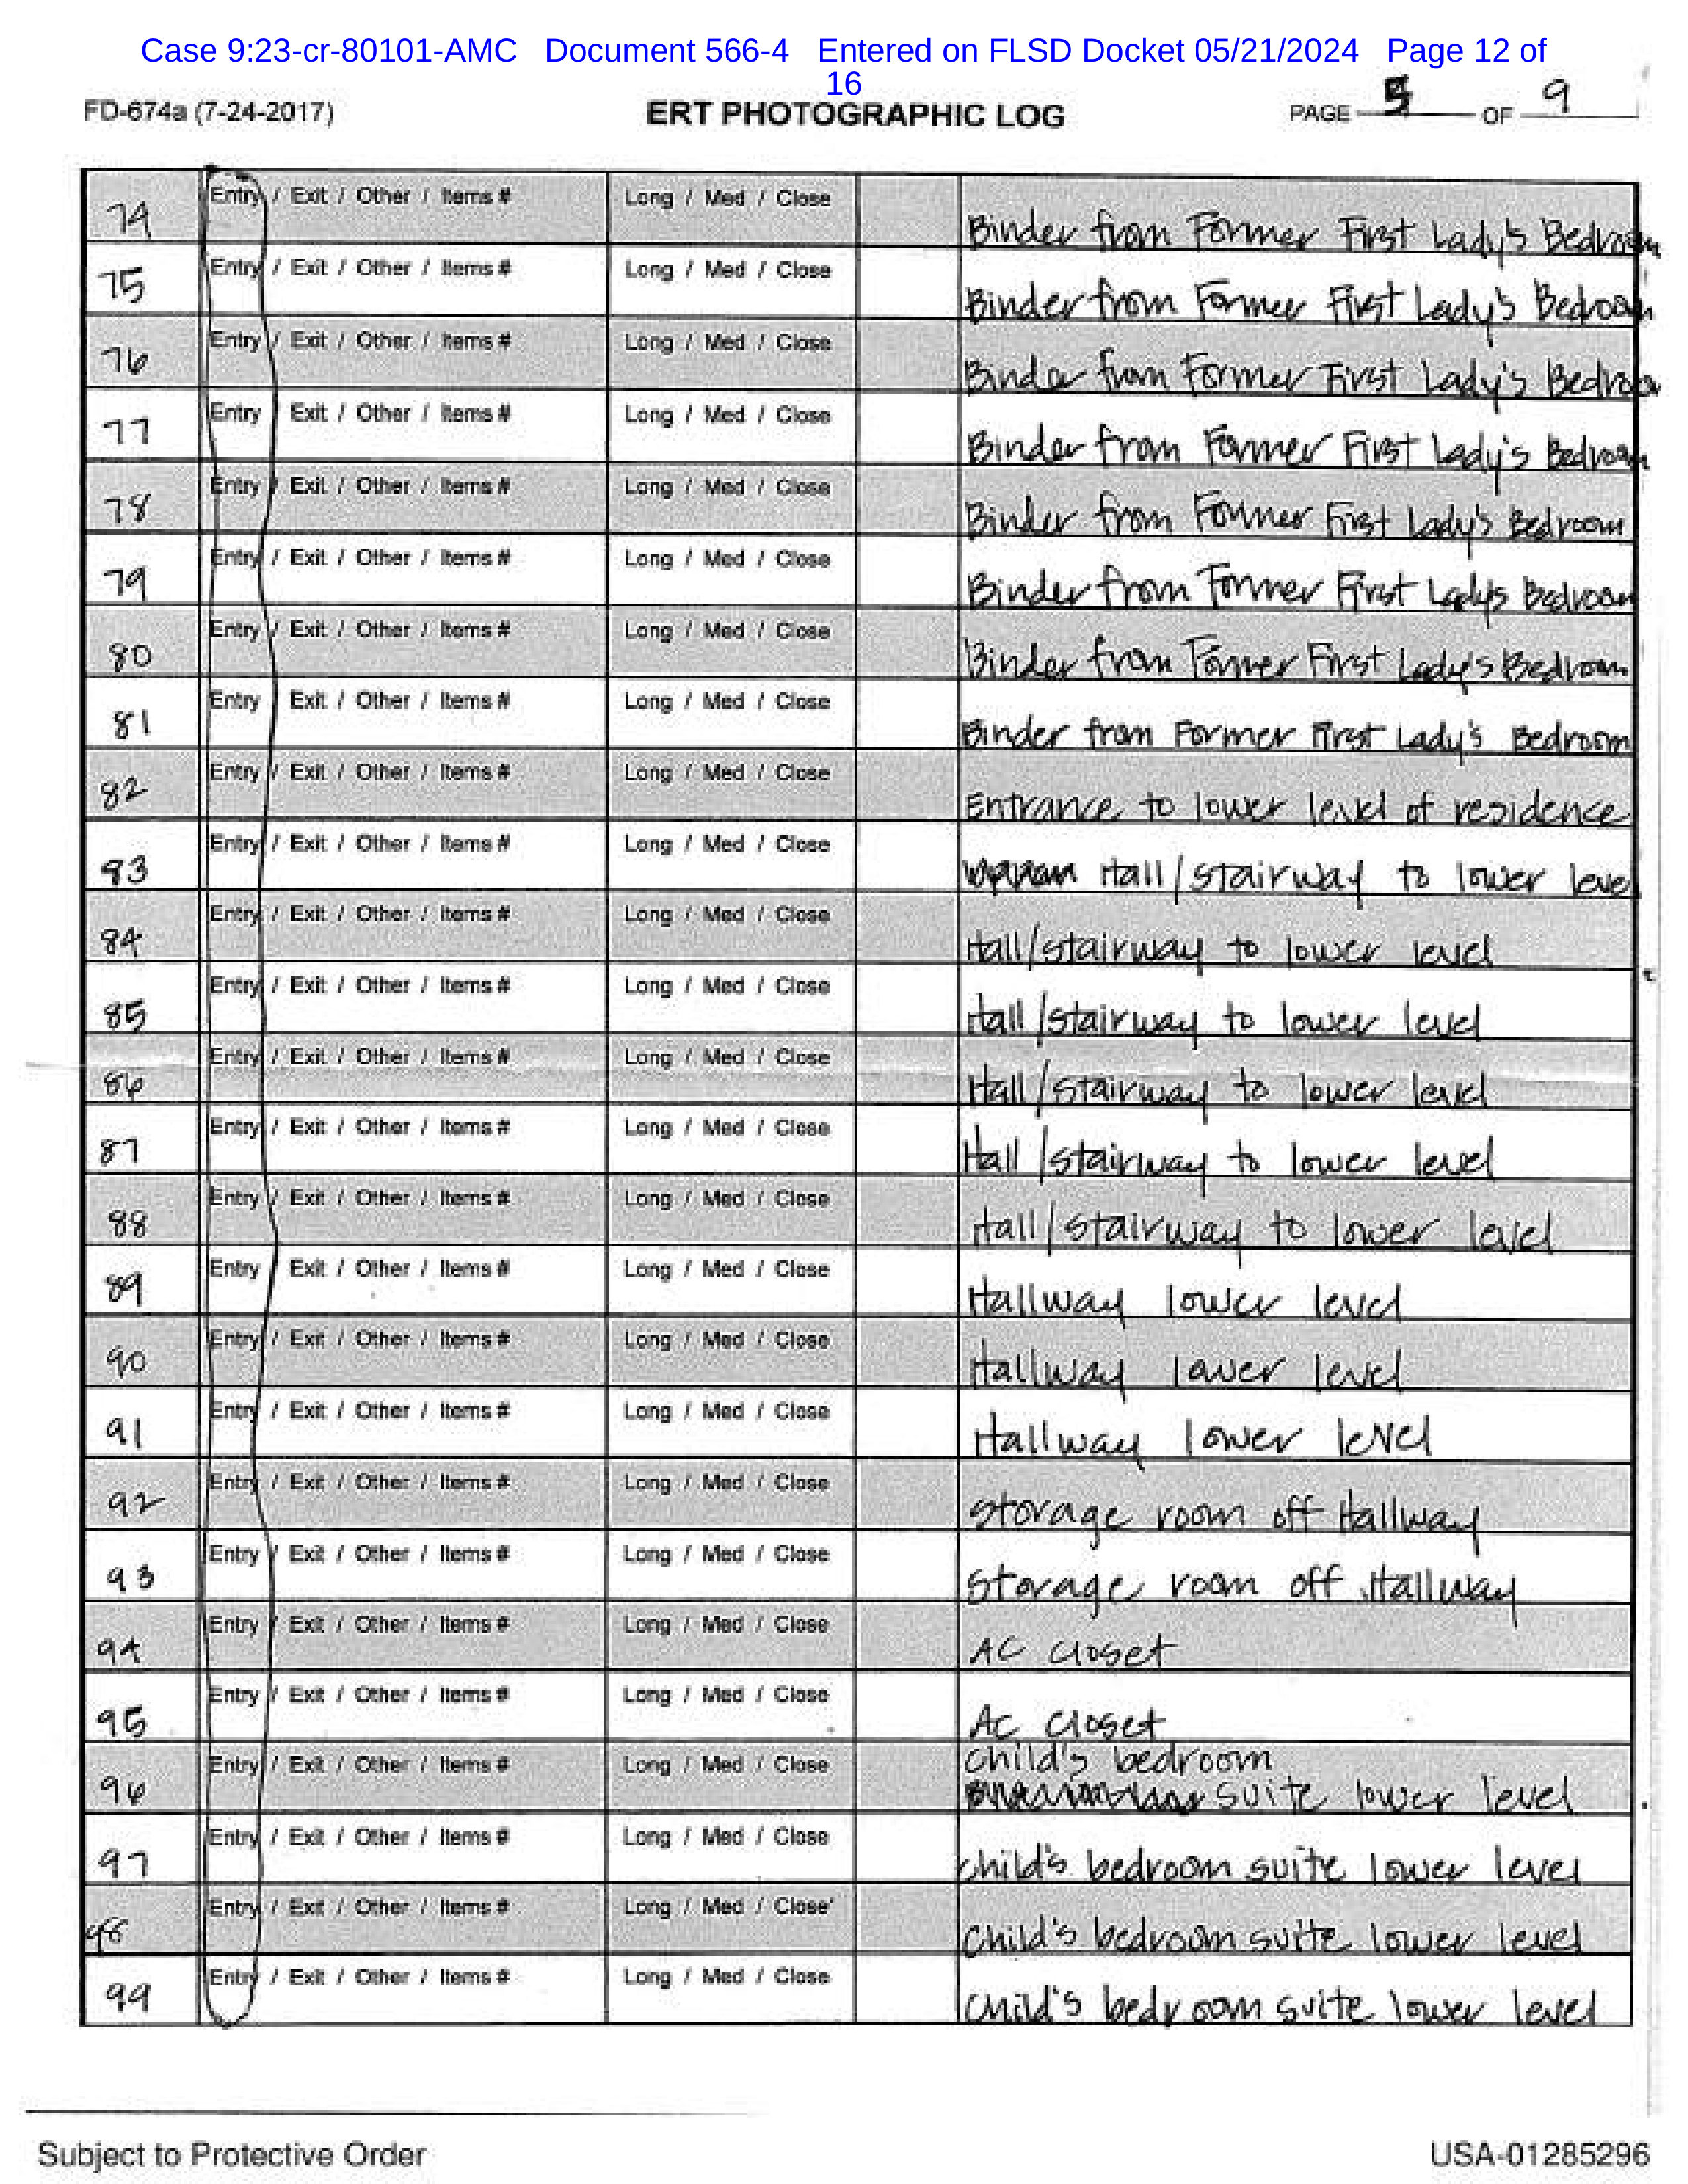 Case 9:23-cr-80101-AMC Document 566-4 Entered on FLSD Docket 05/21/2024 Page 12 of
16
FD-674a (7-24-2017) ERT PHOTOGRAPHIC LOG PAGE 5 OF 9
74 Entry / Exit / Other / Items # Long / Med / Close Binder from Former First Lady's Bedroom
75 Entry / Exit / Other / Items # Long / Med / Close Binder from Former First Lady's Bedroom
76 Entry / Exit / Other / Items # Long / Med / Close Binder from Former First Lady's Bedroom
77 Entry / Exit / Other / Items # Long / Med / Close Binder from Former First Lady's Bedroom
78 Entry / Exit / Other / Items # Long / Med / Close Binder from Former First Lady's Bedroom
79 Entry / Exit / Other / Items # Long / Med / Close Binder from Former First Lady's Bedroom
80 Entry / Exit / Other / Items # Long / Med / Close Binder from Former First Lady's Bedroom
81 Entry / Exit / Other / Items # Long / Med / Close Binder from Former First Lady's Bedroom
82 Entry / Exit / Other / Items # Long / Med / Close Entrance to lower level of residence
83 Entry / Exit / Other / Items # Long / Med / Close Hall/stairway to lower level
84 Entry / Exit / Other / Items # Long / Med / Close Hall/stairway to lower level
85 Entry / Exit / Other / Items # Long / Med / Close Hall/stairway to lower level
86 Entry / Exit / Other / Items # Long / Med / Close Hall/stairway to lower level
87 Entry / Exit / Other / Items # Long / Med / Close Hall/stairway to lower level
88 Entry / Exit / Other / Items # Long / Med / Close Hall/stairway to lower level
89 Entry / Exit / Other / Items # Long / Med / Close Hallway lower level
90 Entry / Exit / Other / Items # Long / Med / Close Hallway lower level
91 Entry / Exit / Other / Items # Long / Med / Close Hallway lower level
92 Entry / Exit / Other / Items # Long / Med / Close Storage room off Hallway
93 Entry / Exit / Other / Items # Long / Med / Close Storage room off Hallway
94 Entry / Exit / Other / Items # Long / Med / Close AC Closet
95 Entry / Exit / Other / Items # Long / Med / Close AC Closet
96 Entry / Exit / Other / Items # Long / Med / Close child's bedroom
suite lower level
97 Entry / Exit / Other / Items # Long / Med / Close child's bedroom suite lower level
98 Entry / Exit / Other / Items # Long / Med / Close child's bedroom suite lower level
99 Entry / Exit / Other / Items # Long / Med / Close child's bedroom suite lower level
Subject to Protective Order USA-01285296